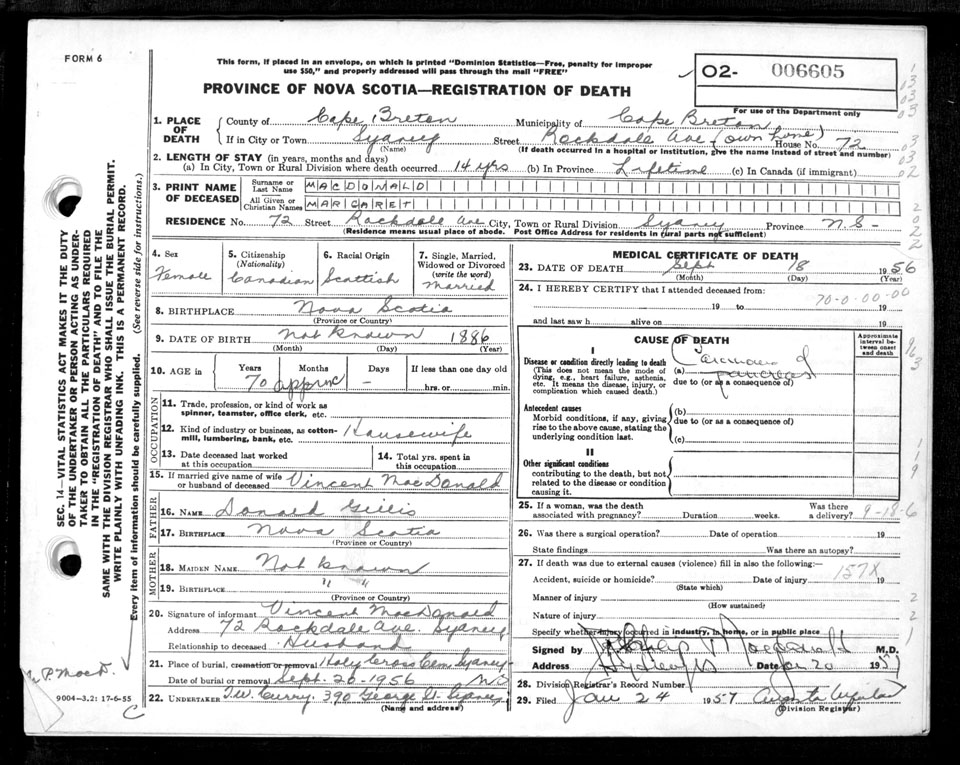 FORM 6
This form, if placed in an envelope, on which is printed "Dominion Statistics—Free, penalty for improper
use $50," and properly addressed will pass through the mail "FREE"
O2- 006605
For use of the Department only
PROVINCE OF NOVA SCOTIA—REGISTRATION OF DEATH
1. PLACE OF DEATH County of Cape Breton Municipality of Cape Breton
If in City or Town Sydney Street Rockdale Ave (own home) House No. 72
(Name) (If death occurred in a hospital or institution, give the name instead of street and number)
2. LENGTH OF STAY (in years, months and days)
(a) In City, Town or Rural Division where death occurred 14 yrs (b) In Province Lifetime (c) In Canada (if immigrant)
3. PRINT NAME OF DECEASED Surname or Last Name MACDONALD
All Given or Christian Names MARGARET
RESIDENCE No. 72 Street Rockdale Ave City, Town or Rural Division Sydney Province N.S-
(Residence means usual place of abode. Post Office Address for residents in rural parts not sufficient)
4. Sex Female
5. Citizenship (Nationality) Canadian
6. Racial Origin Scottish
7. Single, Married, Widowed or Divorced (write the word) Married
8. BIRTHPLACE Nova Scotia
(Province or Country)
9. DATE OF BIRTH Not known 1886
(Month) (Day) (Year)
10. AGE in Years Months Days If less than one day old
70 approx - hrs. or min.
OCCUPATION
11. Trade, profession or kind of work as
spinner, teamster, office clerk, etc.
12. Kind of industry or business, as cotton-
mill, lumbering, bank, etc. Housewife
13. Date deceased last worked
at this occupation
14. Total yrs. spent in
this occupation
15. If married give name of wife
or husband of deceased Vincent MacDonald
FATHER
16. NAME Donald Gillis
17. BIRTHPLACE Nova Scotia
(Province or Country)
MOTHER
18. MAIDEN NAME Not known
19. BIRTHPLACE " "
(Province or Country)
20. Signature of informant Vincent MacDonald
Address 72 Rockdale Ave. Sydney
Relationship to deceased Husband
21. Place of burial, cremation or removal Holy Cross Cem Sydney
Date of burial or removal Sept. 20-1956 NS
22. UNDERTAKER T.W. Curry. 390 George St. Sydney
(Name and address)
MEDICAL CERTIFICATE OF DEATH
23. DATE OF DEATH Sept 18 1956
(Month) (Day) (Year)
24. I HEREBY CERTIFY that I attended deceased from:
70-0-00-00
19 to 19
and last saw h alive on 19
CAUSE OF DEATH
Approximate interval between onset and death
I
Disease or condition directly leading to death
(This does not mean the mode of
dying, e.g., heart failure, asthenia,
etc. It means the disease, injury, or
complication which caused death.)
(a) Carcinoma of pancreas
due to (or as a consequence of)
Antecedent causes
Morbid conditions, if any, giving
rise to the above cause, stating the
underlying condition last.
(b)
due to (or as a consequence of)
(c)
II
Other significant conditions
contributing to the death, but not
related to the disease or condition
causing it.
25. If a woman, was the death
associated with pregnancy? Duration weeks. Was there a delivery? 9-18-6
26. Was there a surgical operation? Date of operation 19
State findings Was there an autopsy?
27. If death was due to external causes (violence) fill in also the following:—
157X
Accident, suicide or homicide? Date of injury 19
(State which)
Manner of injury
(How sustained)
Nature of injury
Specify whether injury occurred in industry, in home, or in public place
Signed by M.D.
Address Sydney NS Date Jan 20 1957
28. Division Registrar's Record Number
29. Filed Jan 24 1957
(Division Registrar)
SEC. 14—VITAL STATISTICS ACT MAKES IT THE DUTY
OF THE UNDERTAKER OR PERSON ACTING AS UNDER-
TAKER TO OBTAIN ALL THE PARTICULARS REQUIRED
IN THE "REGISTRATION OF DEATH" AND TO FILE THE
SAME WITH THE DIVISION REGISTRAR WHO SHALL ISSUE THE BURIAL PERMIT.
WRITE PLAINLY WITH UNFADING INK. THIS IS A PERMANENT RECORD.
Every item of information should be carefully supplied. (See reverse side for instructions.)
9004-3.2: 17-6-55
C